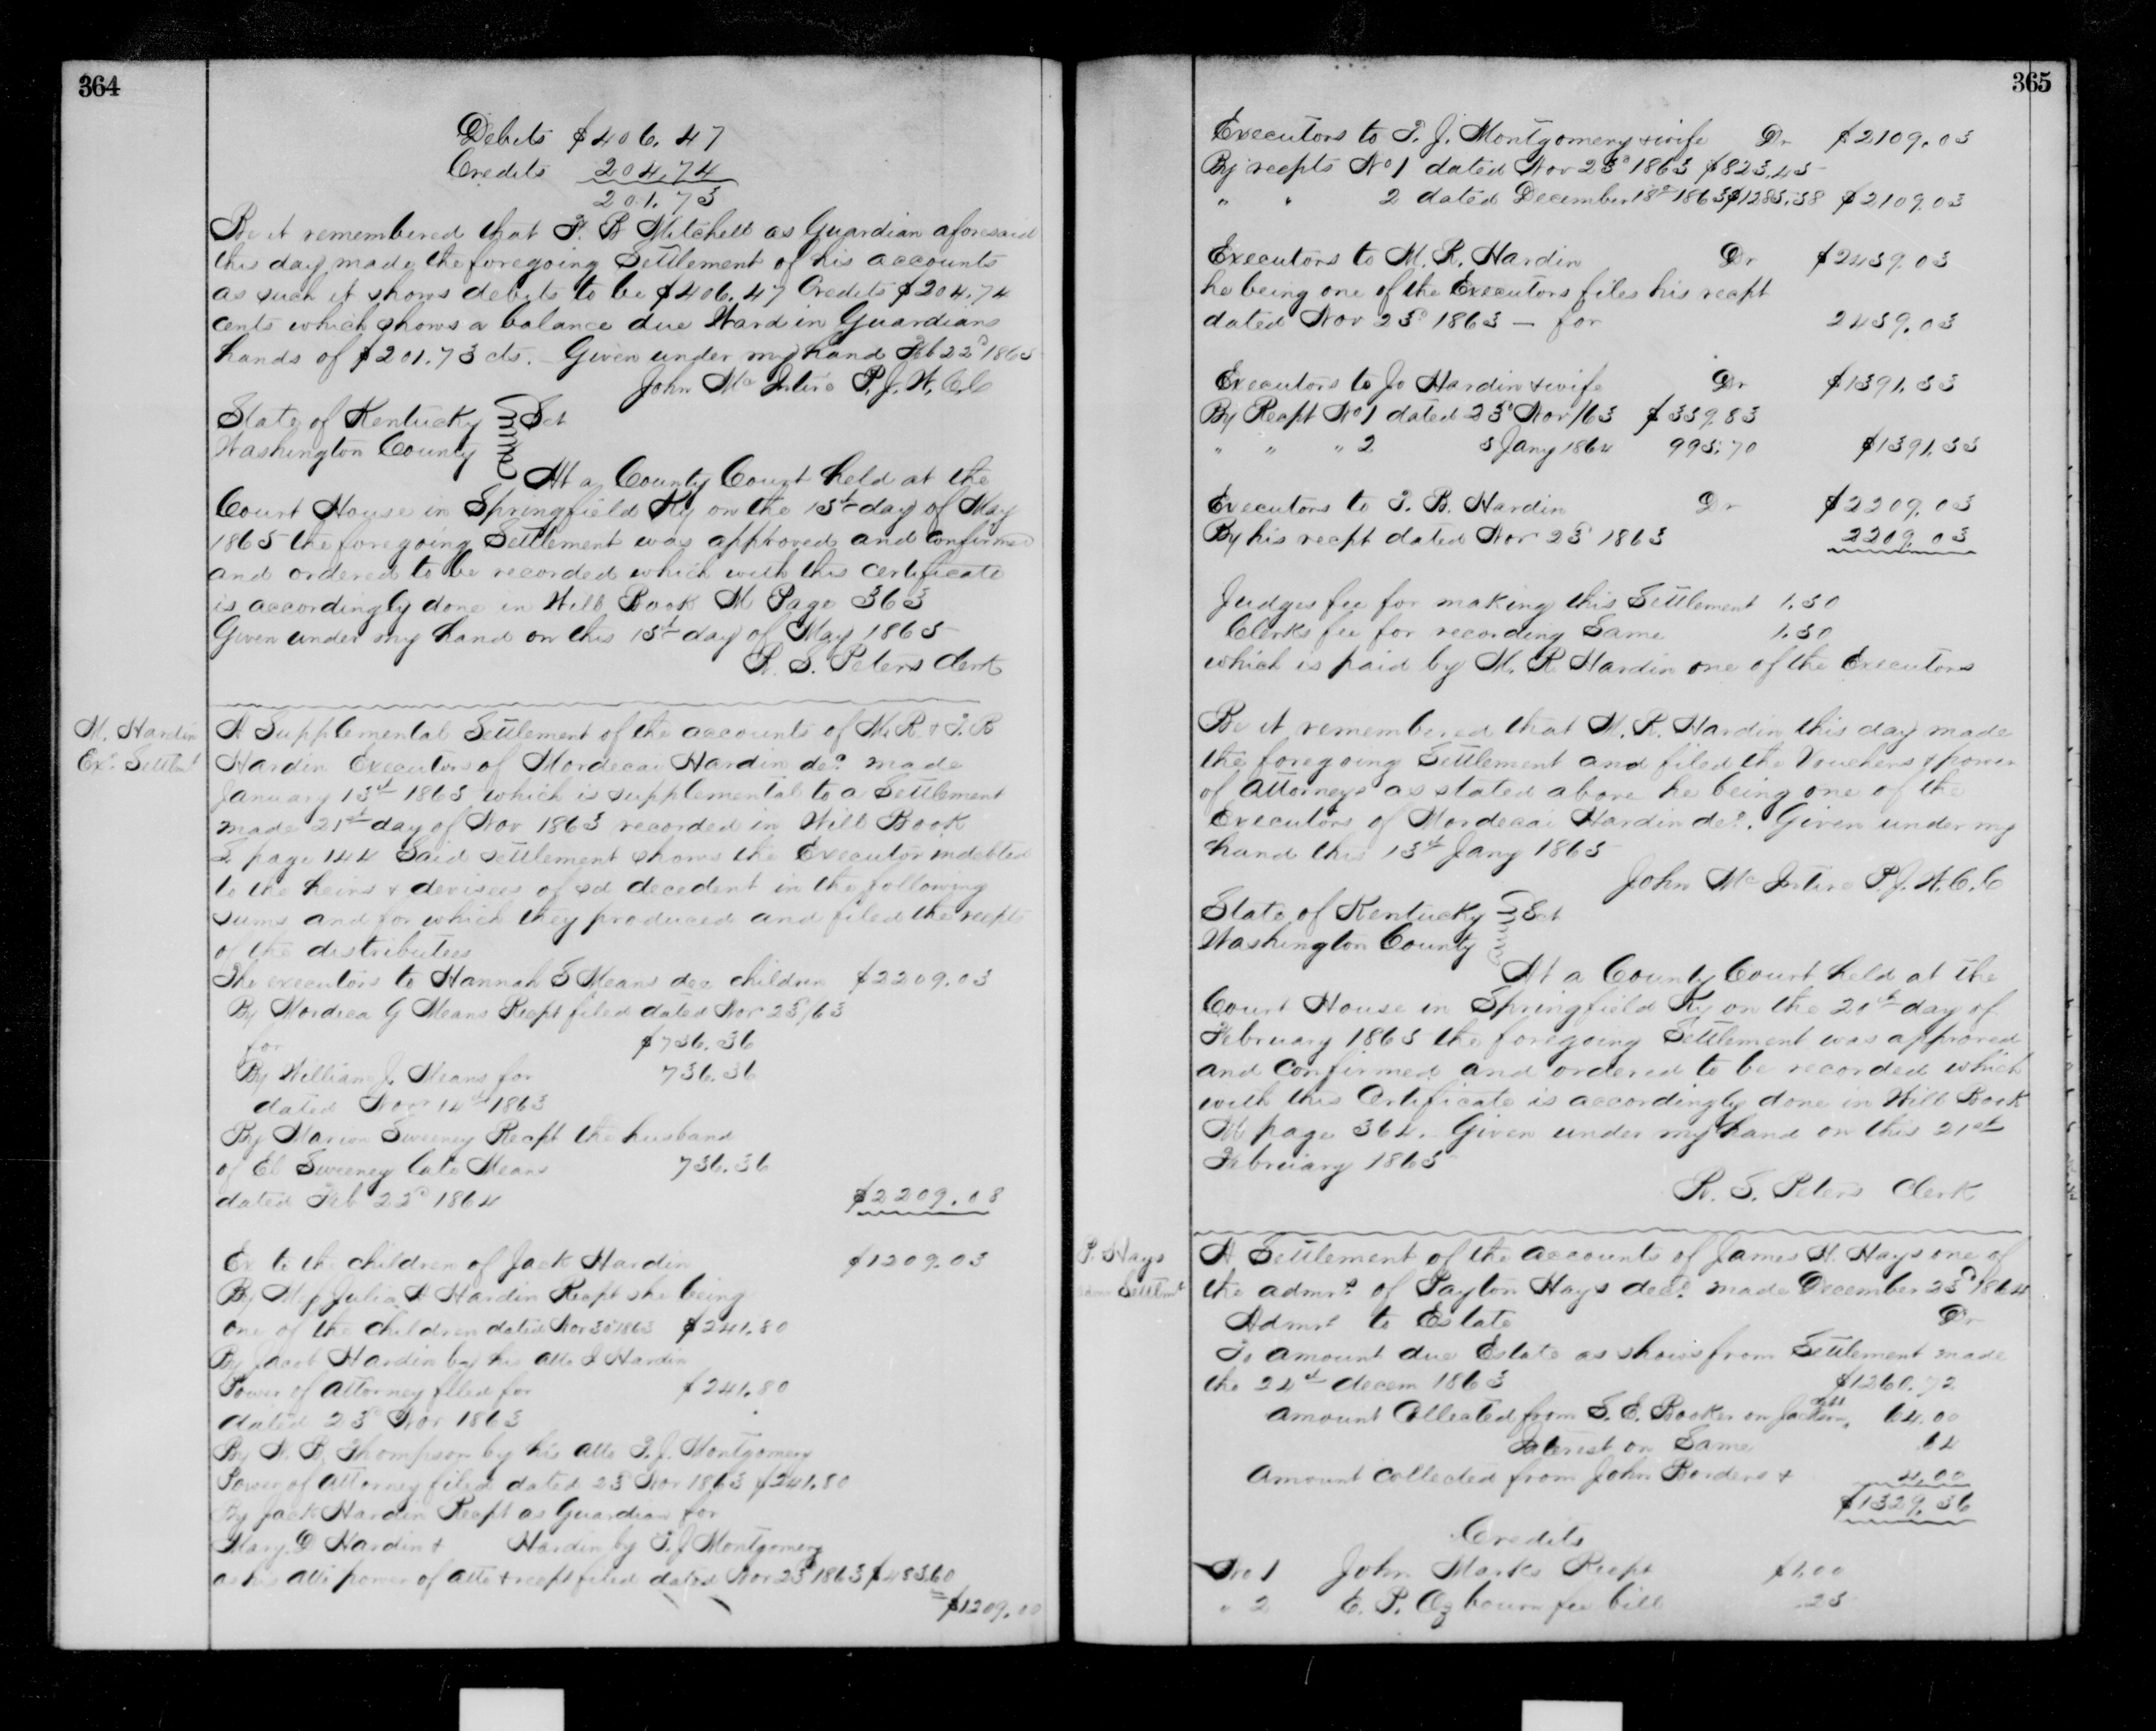 364
Debits $406.47
Credits 204.74
201.73
Be it remembered that T. B Mitchell as Guardian aforesaid
this day made the foregoing Settlement of his accounts
as such it shows debits to be $406.47 Credits $204.74
cents which shows a balance due Ward in Guardians
hands of $201.73 cts. Given under my hand Feb 22d 1865
John Mc Intire P.J.W.C.C
State of Kentucky Sct
Washington County
At a County Court held at the
Court House in Springfield Ky on the 15th day of May
1865 the foregoing Settlement was approved and confirmed
and ordered to be recorded which with this certificate
is accordingly done in Will Book M Page 363
Given under my hand on this 15th day of May 1865
R. S. Peters Clerk
M. Hardin
Exr Settlmt
A Supplemental Settlement of the accounts of M. R. & T. B
Hardin Executors of Mordecai Hardin decd made
January 13th 1865 which is supplemental to a Settlement
made 21st day of Nov 1863 recorded in Will Book
page 144 Said settlement shows the Executor indebted
to the heirs & devisees of sd decedent in the following
sums and for which they produced and filed the recpts
of the distributees
The executors to Hannah S Means dec children $2209.03
By Mordica G Means Recpt filed dated Nov 23d/63
for $736.36
By William J. Means for 736.36
dated Novr 14th 1863
By Marion Sweeney Recpt the husband
of El Sweeney late Means 736.36
dated Feb 22d 1864 $2209.08
Ex to the children of Jack Hardin $1209.03
By Julia A Hardin Recpt she being
one of the children dated Nov 30 1863 $241.80
By Jacob Hardin by his atto J Hardin
Power of attorney filed for $241.80
dated 23d Nov 1863
By N. B. Thompson by his atto T. J. Montgomery
Power of attorney filed dated 23d Nov 1863 $241.80
By Jack Hardin Recpt as Guardian for
Mary D Hardin & Hardin by T. J Montgomery
as his atto power of atto & recpt filed dated Nov 23d 1863 $483.60
$1209.00
365
Executors to T. J. Montgomery & wife Dr $2109.03
By recpts No 1 dated Nov 23d 1863 $823.45
" " 2 dated December 18th 1863 $1285.58 $2109.03
Executors to M. R. Hardin Dr $2439.03
he being one of the Executors files his recpt
dated Nov 23d 1863 — for 2439.03
Executors to Jo Hardin & wife Dr $1391.33
By Recpt No 1 dated 23d Nov/63 $339.83
" " " 2 5 Jany 1864 995.70 $1391.33
Executors to T. B. Hardin Dr $2209.03
By his recpt dated Nov 23d 1863 2209.03
Judges fee for making this Settlement 1.50
Clerks fee for recording Same 1.50
which is paid by M. R. Hardin one of the Executors
Be it remembered that M. R. Hardin this day made
the foregoing Settlement and filed the Vouchers & power
of attorneys as stated above he being one of the
Executors of Mordecai Hardin decd. Given under my
hand this 13th Jany 1865
John Mc Intire P.J.W.C.C
State of Kentucky Sct
Washington County
At a County Court held at the
Court House in Springfield Ky on the 20th day of
February 1865 the foregoing Settlement was approved
and confirmed and ordered to be recorded which
with this Certificate is accordingly done in Will Book
M page 364. Given under my hand on this 21st
February 1865
R. S. Peters Clerk
P. Hays
Settlmt
A Settlement of the accounts of James H. Hays one of
the admrs of Payton Hays decd. made December 23d 1864
Admrs to Estate Dr
To amount due Estate as shows from Settlement made
the 24th decem 1863 $1260.72
amount Collected from S. E. Booker on 64.00
Interest on Same .64
amount collected from John Borders & 4.00
$1329.36
Credits
No 1 John Marks Recpt $1.00
" 2 E. P. Ozbourn fee bill .25